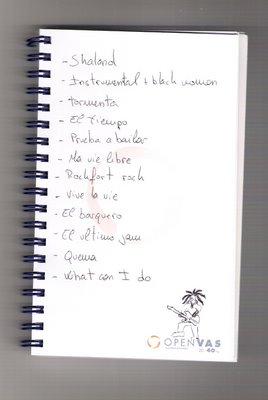 - Shaland
- Instrumental + black woman
- tormenta
- El tiempo
- Prueba a bailar
- Ma vie libre
- Rockfort rock
- Vive la vie
- El barquero
- El ultimo jam
- Quema
- What can I do
OPENVAS
40